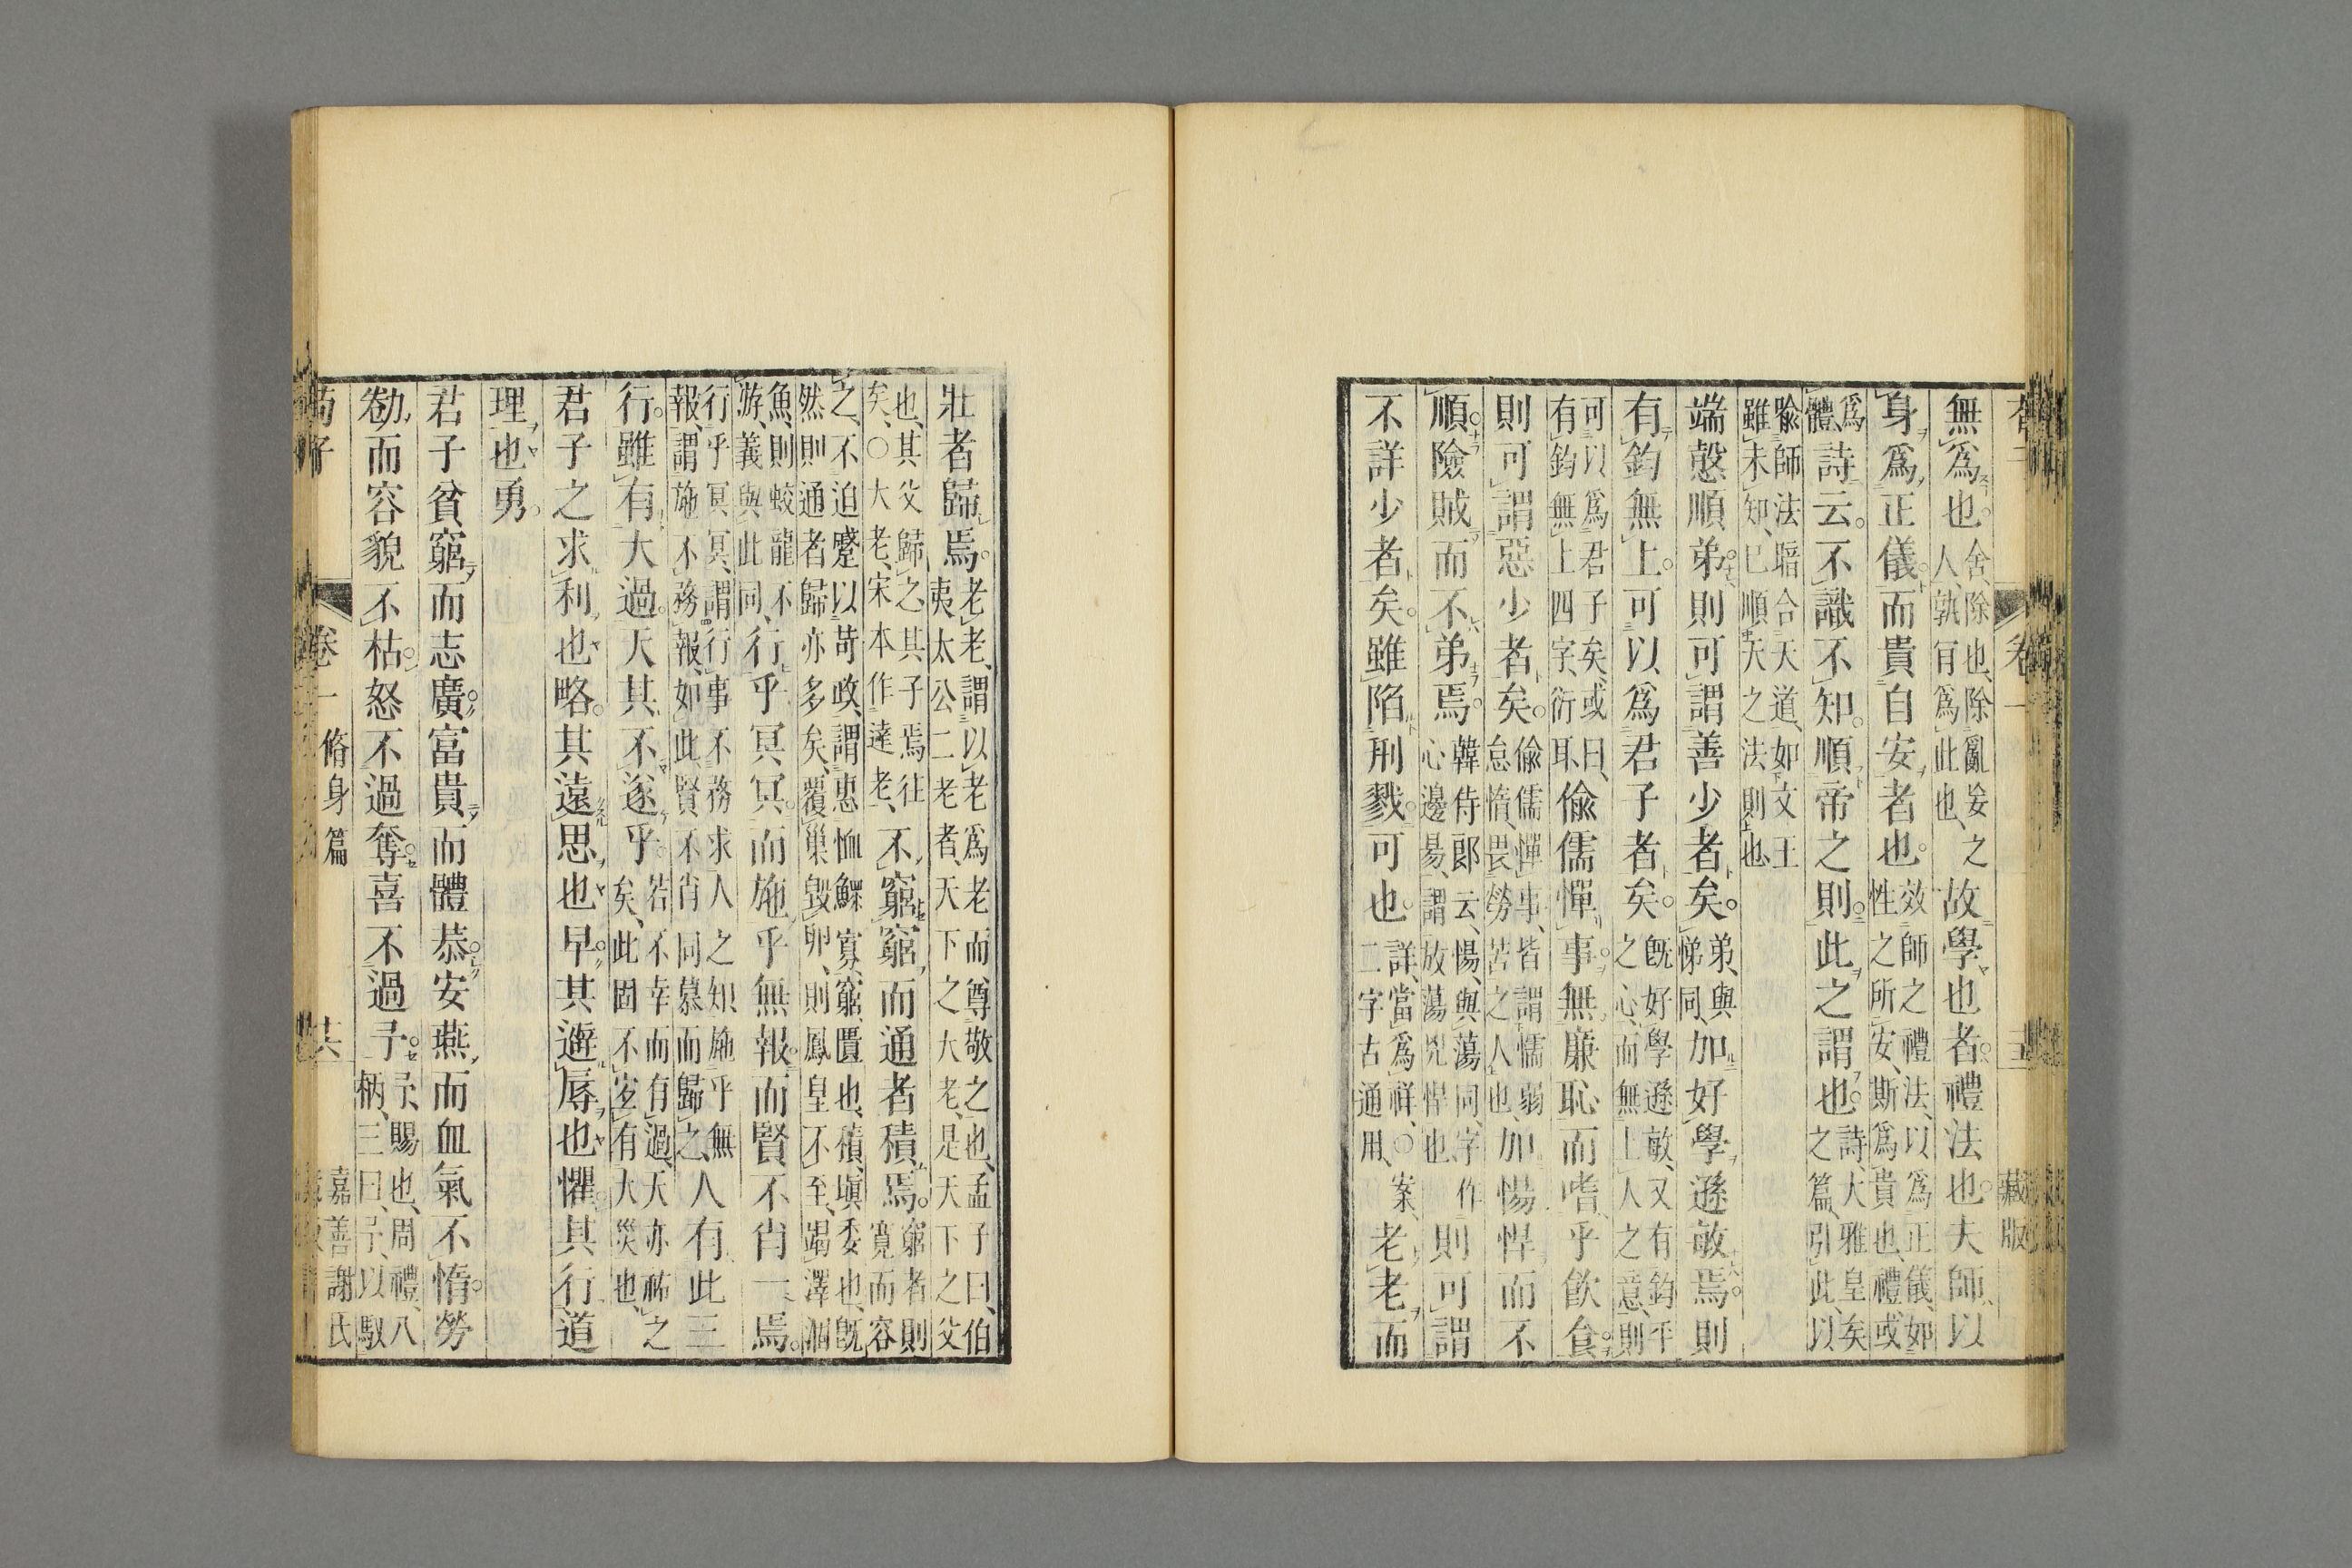 無爲也舍、除也、除亂妄之
人、孰有爲此也、故學也者禮法也夫師以
身爲正儀而貴自安者也效師之禮法、以爲正儀、如
性之所安、斯爲貴也、禮、或
爲
體、詩云不識不知順帝之則此之謂也詩、大雅皇矣
之篇、引此、以
喩師法暗合天道、如文王
雖未知、已順天之法則也
端愨順弟則可謂善少者矣弟、與
悌同、加好學遜敏焉則
有鈞無上可以爲君子者矣旣好學遜敏、又有鈞平
之心、而無上人之意、則
可以爲君子矣、或曰、
有鈞無上四字、衍耳、偸儒憚事無廉恥而嗜乎飲食
則可謂惡少者矣偸儒憚事、皆謂懦弱
怠惰、畏勞苦之人也、加愓悍而不
順險賊而不弟焉韓侍郞云、愓、與蕩同、字作
心邊昜、謂放蕩兇悍也則可謂
不詳少者矣雖陷刑戮可也詳、當爲祥、○案、
二字古通用、老老而
壯者歸焉老老、謂以老爲老而尊敬之也、孟子曰、伯
夷太公二老者、天下之大老、是天下之父
也、其父歸之、其子焉往
矣、○大老、宋本作達老、不窮窮而通者積焉窮者則
寬而容
之、不迫蹙以苛政、謂惠恤鰥寡窮匱也、積、塡委也、旣
然則通者歸亦多矣、覆巢毀卵、則鳳皇不至、竭澤涸
魚、則蛟龍不
游、義與此同、行乎冥冥而施乎無報而賢不肖一焉
行乎冥冥、謂行事不務求人之知、施乎無
報、謂施不務報、如此、賢不肖同慕而歸之、人有此三
行雖有大過天其不遂乎若不幸而有過、天亦祐之
矣、此固不宜有大災也、
君子之求利也略其遠思也早其避辱也懼其行道
理也勇
君子貧窮而志廣富貴而體恭安燕而血氣不惰勞
勌而容貌不枯怒不過奪喜不過予予、賜也、周禮、八
柄、三曰、予、以馭
荀子 卷一 脩身篇 共 嘉善謝氏